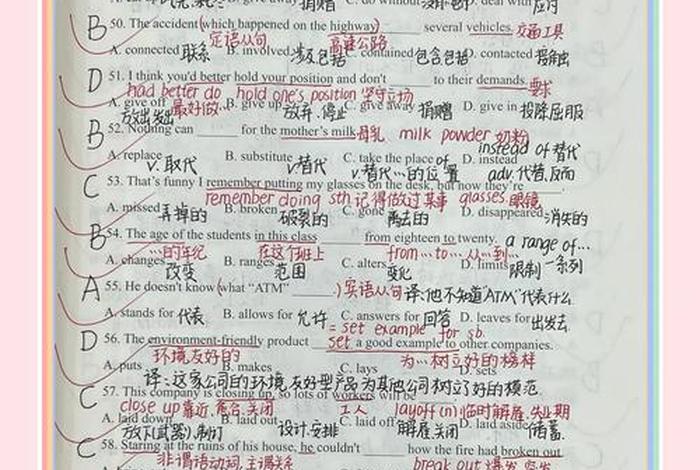 捐赠 C. do without deal with 应付
B 50. The accident (which happened on the highway) ____ several vehicles. 交通工具
定语从句 高速公路
A. connected 联系 B. involved 涉及包括 C. contained 包含包括 D. contacted
D 51. I think you'd better hold your position and don't ____ to their demands. 要求
had better do 最好做… hold one's position 坚守立场
A. give off 放出发出 B. give up 放弃.停止 C. give away 捐赠 D. give in 投降屈服
B 52. Nothing can ____ for the mother's milk 母乳 milk powder 奶粉
instead of 替代
A. replace v.取代 B. substitute v.替代 C. take the place of v.替代…的位置 D. instead adv.代替.反而
C 53. That's funny I remember putting my glasses on the desk, but now they're ____.
remember doing sth 记得做过某事 glasses 眼镜
A. missed 弄掉的 B. broken 破裂的 C. gone 离去的 D. disappeared 消失的
B 54. The age of the students in this class ____ from eighteen to twenty. a range of…
…的年纪 在这个班上 from…to…从…到… 一系列
A. changes 改变 B. ranges 范围 C. alters 变化 D. limits 限制
A 55. He doesn't know (what “ATM” ____.) 宾语从句 译:他不知道“ATM”代表什么
A. stands for 代表 B. allows for 允许 C. answers for 回答 D. leaves for 出发去
= set example for sb.
D 56. The environment-friendly product ____ set a good example to other companies.
环境友好的 为…树立好的榜样
A. puts B. makes C. lays D. sets
译:这家公司的环境友好型产品为其他公司树立了好的模范.
C 57. This company is closing up, so lots of workers will be ____
close up 靠近.愈合.关闭 工人 layoff (n) 临时解雇.失业期
A. laid down 放下(武器).制订 B. laid out 设计.安排 C. laid off 解雇.关闭 D. laid aside 储蓄.
C 58. Staring at the ruins of his house, he couldn't ____ how the fire had broken out
非谓语动词,主谓关系 break out